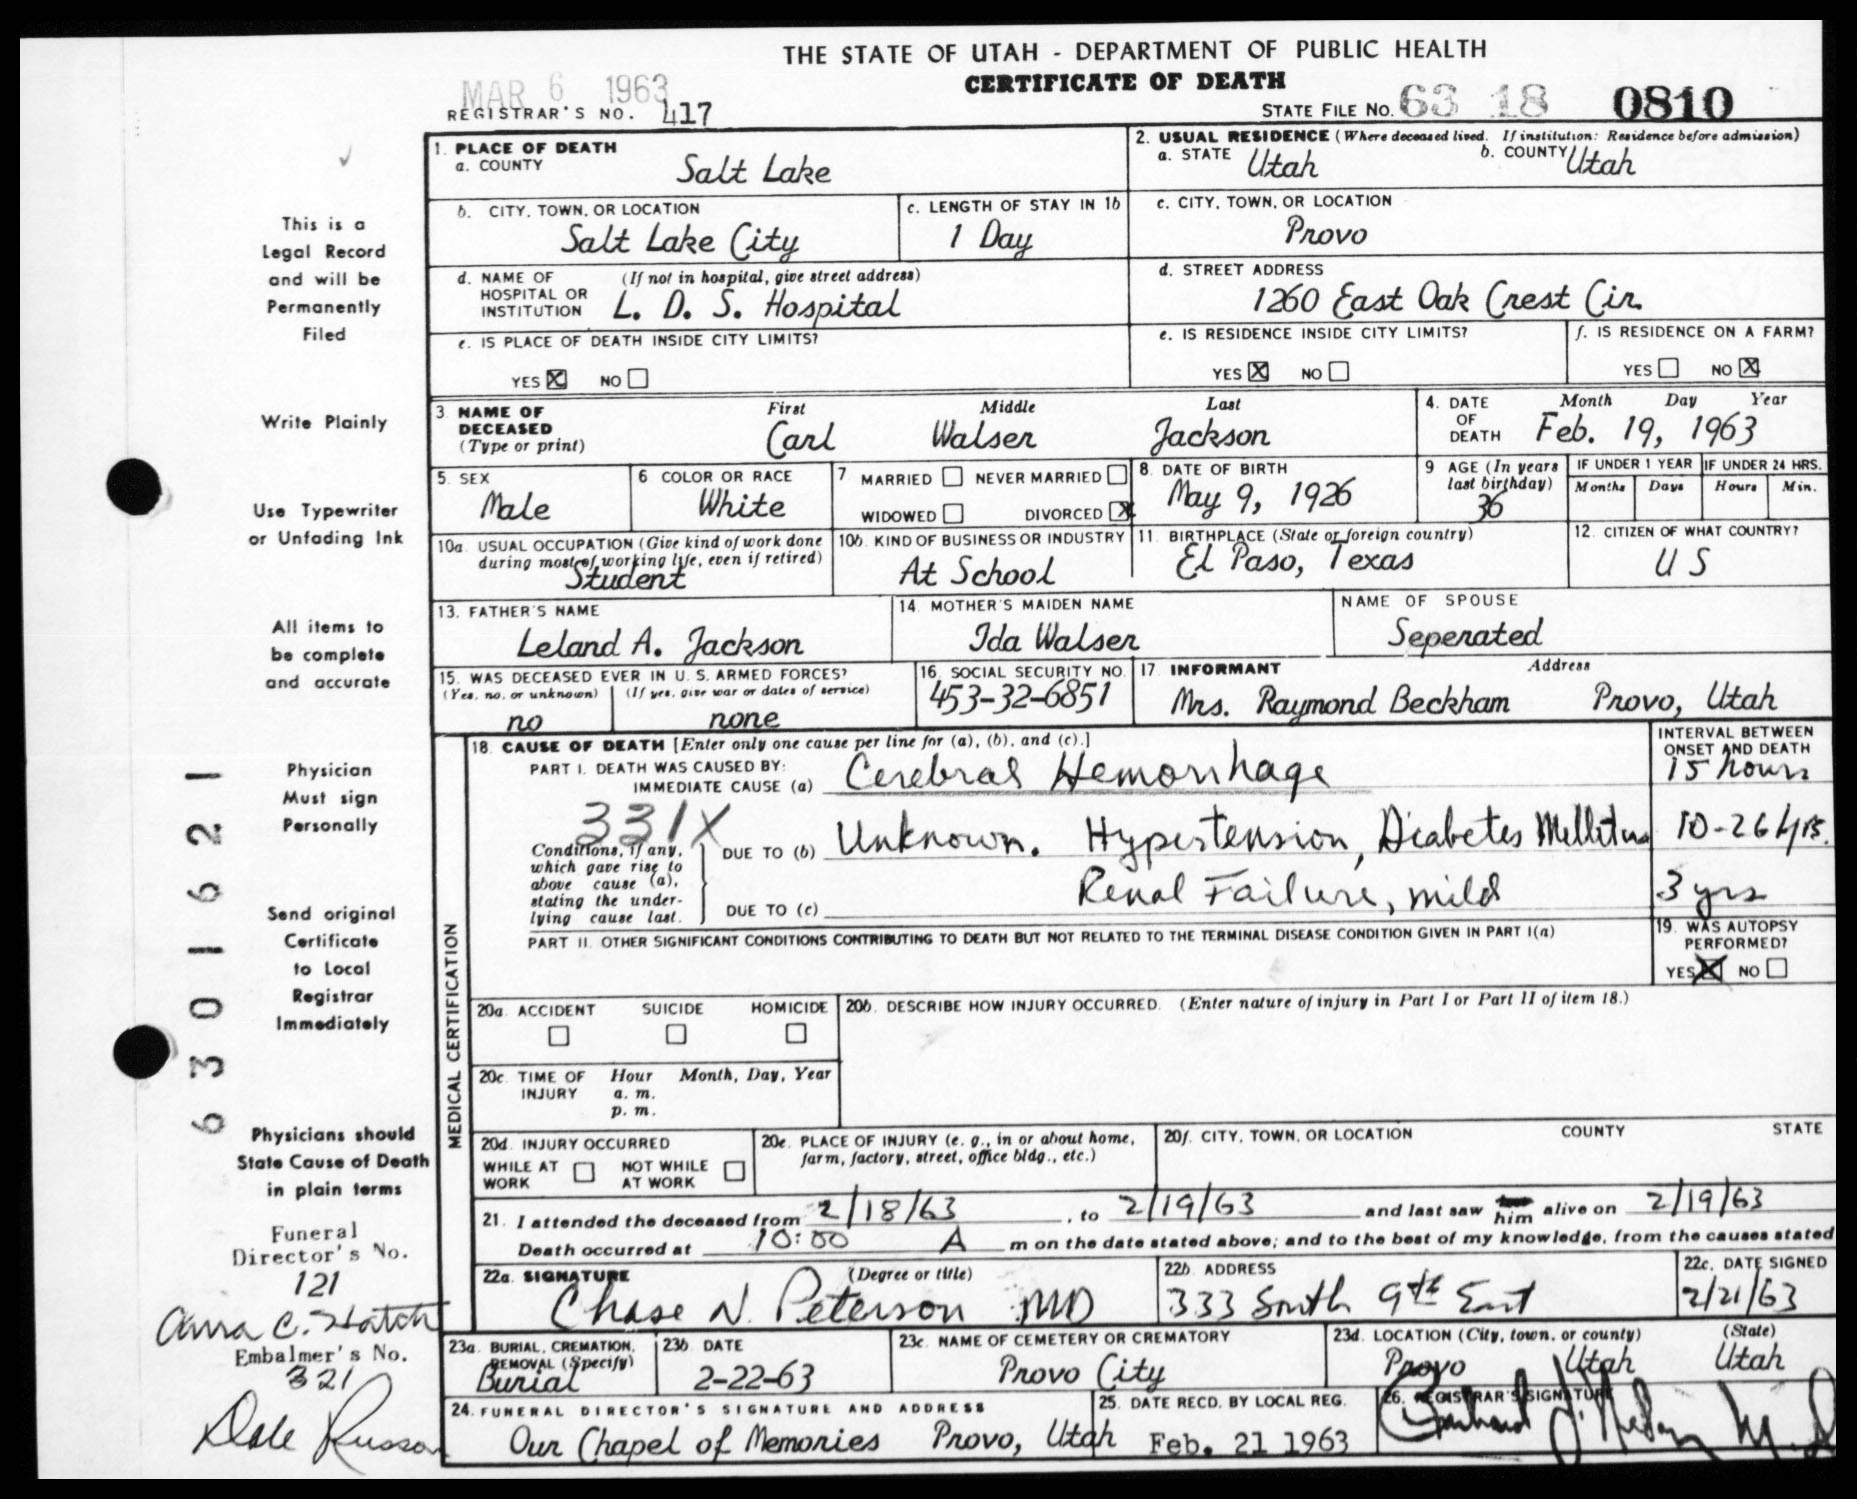 THE STATE OF UTAH - DEPARTMENT OF PUBLIC HEALTH
CERTIFICATE OF DEATH
MAR 6 1963
REGISTRAR'S NO. 417
STATE FILE NO. 63 18 0810
1. PLACE OF DEATH
a. COUNTY Salt Lake
2. USUAL RESIDENCE (Where deceased lived. If institution: Residence before admission)
a. STATE Utah b. COUNTY Utah
b. CITY, TOWN, OR LOCATION Salt Lake City
c. LENGTH OF STAY IN 1b 1 Day
c. CITY, TOWN, OR LOCATION Provo
d. NAME OF HOSPITAL OR INSTITUTION (If not in hospital, give street address) L. D. S. Hospital
d. STREET ADDRESS 1260 East Oak Crest Cir.
e. IS PLACE OF DEATH INSIDE CITY LIMITS?
YES X NO
e. IS RESIDENCE INSIDE CITY LIMITS?
YES X NO
f. IS RESIDENCE ON A FARM?
YES NO X
3. NAME OF DECEASED (Type or print)
First Middle Last
Carl Walser Jackson
4. DATE OF DEATH Month Day Year
Feb. 19, 1963
5. SEX Male
6 COLOR OR RACE White
7 MARRIED NEVER MARRIED
WIDOWED DIVORCED X
8. DATE OF BIRTH May 9, 1926
9 AGE (In years last birthday) 36
IF UNDER 1 YEAR Months Days
IF UNDER 24 HRS. Hours Min.
10a. USUAL OCCUPATION (Give kind of work done during most of working life, even if retired) Student
10b. KIND OF BUSINESS OR INDUSTRY At School
11. BIRTHPLACE (State or foreign country) El Paso, Texas
12. CITIZEN OF WHAT COUNTRY? U S
13. FATHER'S NAME Leland A. Jackson
14. MOTHER'S MAIDEN NAME Ida Walser
NAME OF SPOUSE Seperated
15. WAS DECEASED EVER IN U. S. ARMED FORCES?
(Yes, no, or unknown) (If yes, give war or dates of service)
no none
16. SOCIAL SECURITY NO. 453-32-6851
17. INFORMANT Address
Mrs. Raymond Beckham Provo, Utah
MEDICAL CERTIFICATION
18. CAUSE OF DEATH [Enter only one cause per line for (a), (b), and (c).]
INTERVAL BETWEEN ONSET AND DEATH
PART I. DEATH WAS CAUSED BY:
IMMEDIATE CAUSE (a) Cerebral Hemorrhage 15 hours
331X
Conditions, if any, which gave rise to above cause (a), stating the underlying cause last.
DUE TO (b) Unknown. Hypertension, Diabetes Mellitus 10-26 yrs.
DUE TO (c) Renal Failure, mild 3 yrs
PART II. OTHER SIGNIFICANT CONDITIONS CONTRIBUTING TO DEATH BUT NOT RELATED TO THE TERMINAL DISEASE CONDITION GIVEN IN PART I(a)
19. WAS AUTOPSY PERFORMED?
YES X NO
20a. ACCIDENT SUICIDE HOMICIDE
20b. DESCRIBE HOW INJURY OCCURRED. (Enter nature of injury in Part I or Part II of item 18.)
20c. TIME OF INJURY Hour Month, Day, Year
a. m.
p. m.
20d. INJURY OCCURRED
WHILE AT WORK NOT WHILE AT WORK
20e. PLACE OF INJURY (e. g., in or about home, farm, factory, street, office bldg., etc.)
20f. CITY, TOWN, OR LOCATION COUNTY STATE
21. I attended the deceased from 2/18/63, to 2/19/63 and last saw him alive on 2/19/63
Death occurred at 10:00 A m on the date stated above; and to the best of my knowledge, from the causes stated
22a. SIGNATURE (Degree or title)
Chase N. Peterson MD
22b. ADDRESS 333 South 9th East
22c. DATE SIGNED 2/21/63
23a. BURIAL, CREMATION, REMOVAL (Specify) Burial
23b. DATE 2-22-63
23c. NAME OF CEMETERY OR CREMATORY Provo City
23d. LOCATION (City, town, or county) (State)
Provo Utah Utah
24. FUNERAL DIRECTOR'S SIGNATURE AND ADDRESS
Our Chapel of Memories Provo, Utah
25. DATE RECD. BY LOCAL REG. Feb. 21 1963
26. REGISTRAR'S SIGNATURE
This is a
Legal Record
and will be
Permanently
Filed
Write Plainly
Use Typewriter
or Unfading Ink
All items to
be complete
and accurate
Physician
Must sign
Personally
Send original
Certificate
to Local
Registrar
Immediately
Physicians should
State Cause of Death
in plain terms
Funeral
Director's No.
121
Embalmer's No.
321
Dale
6301621